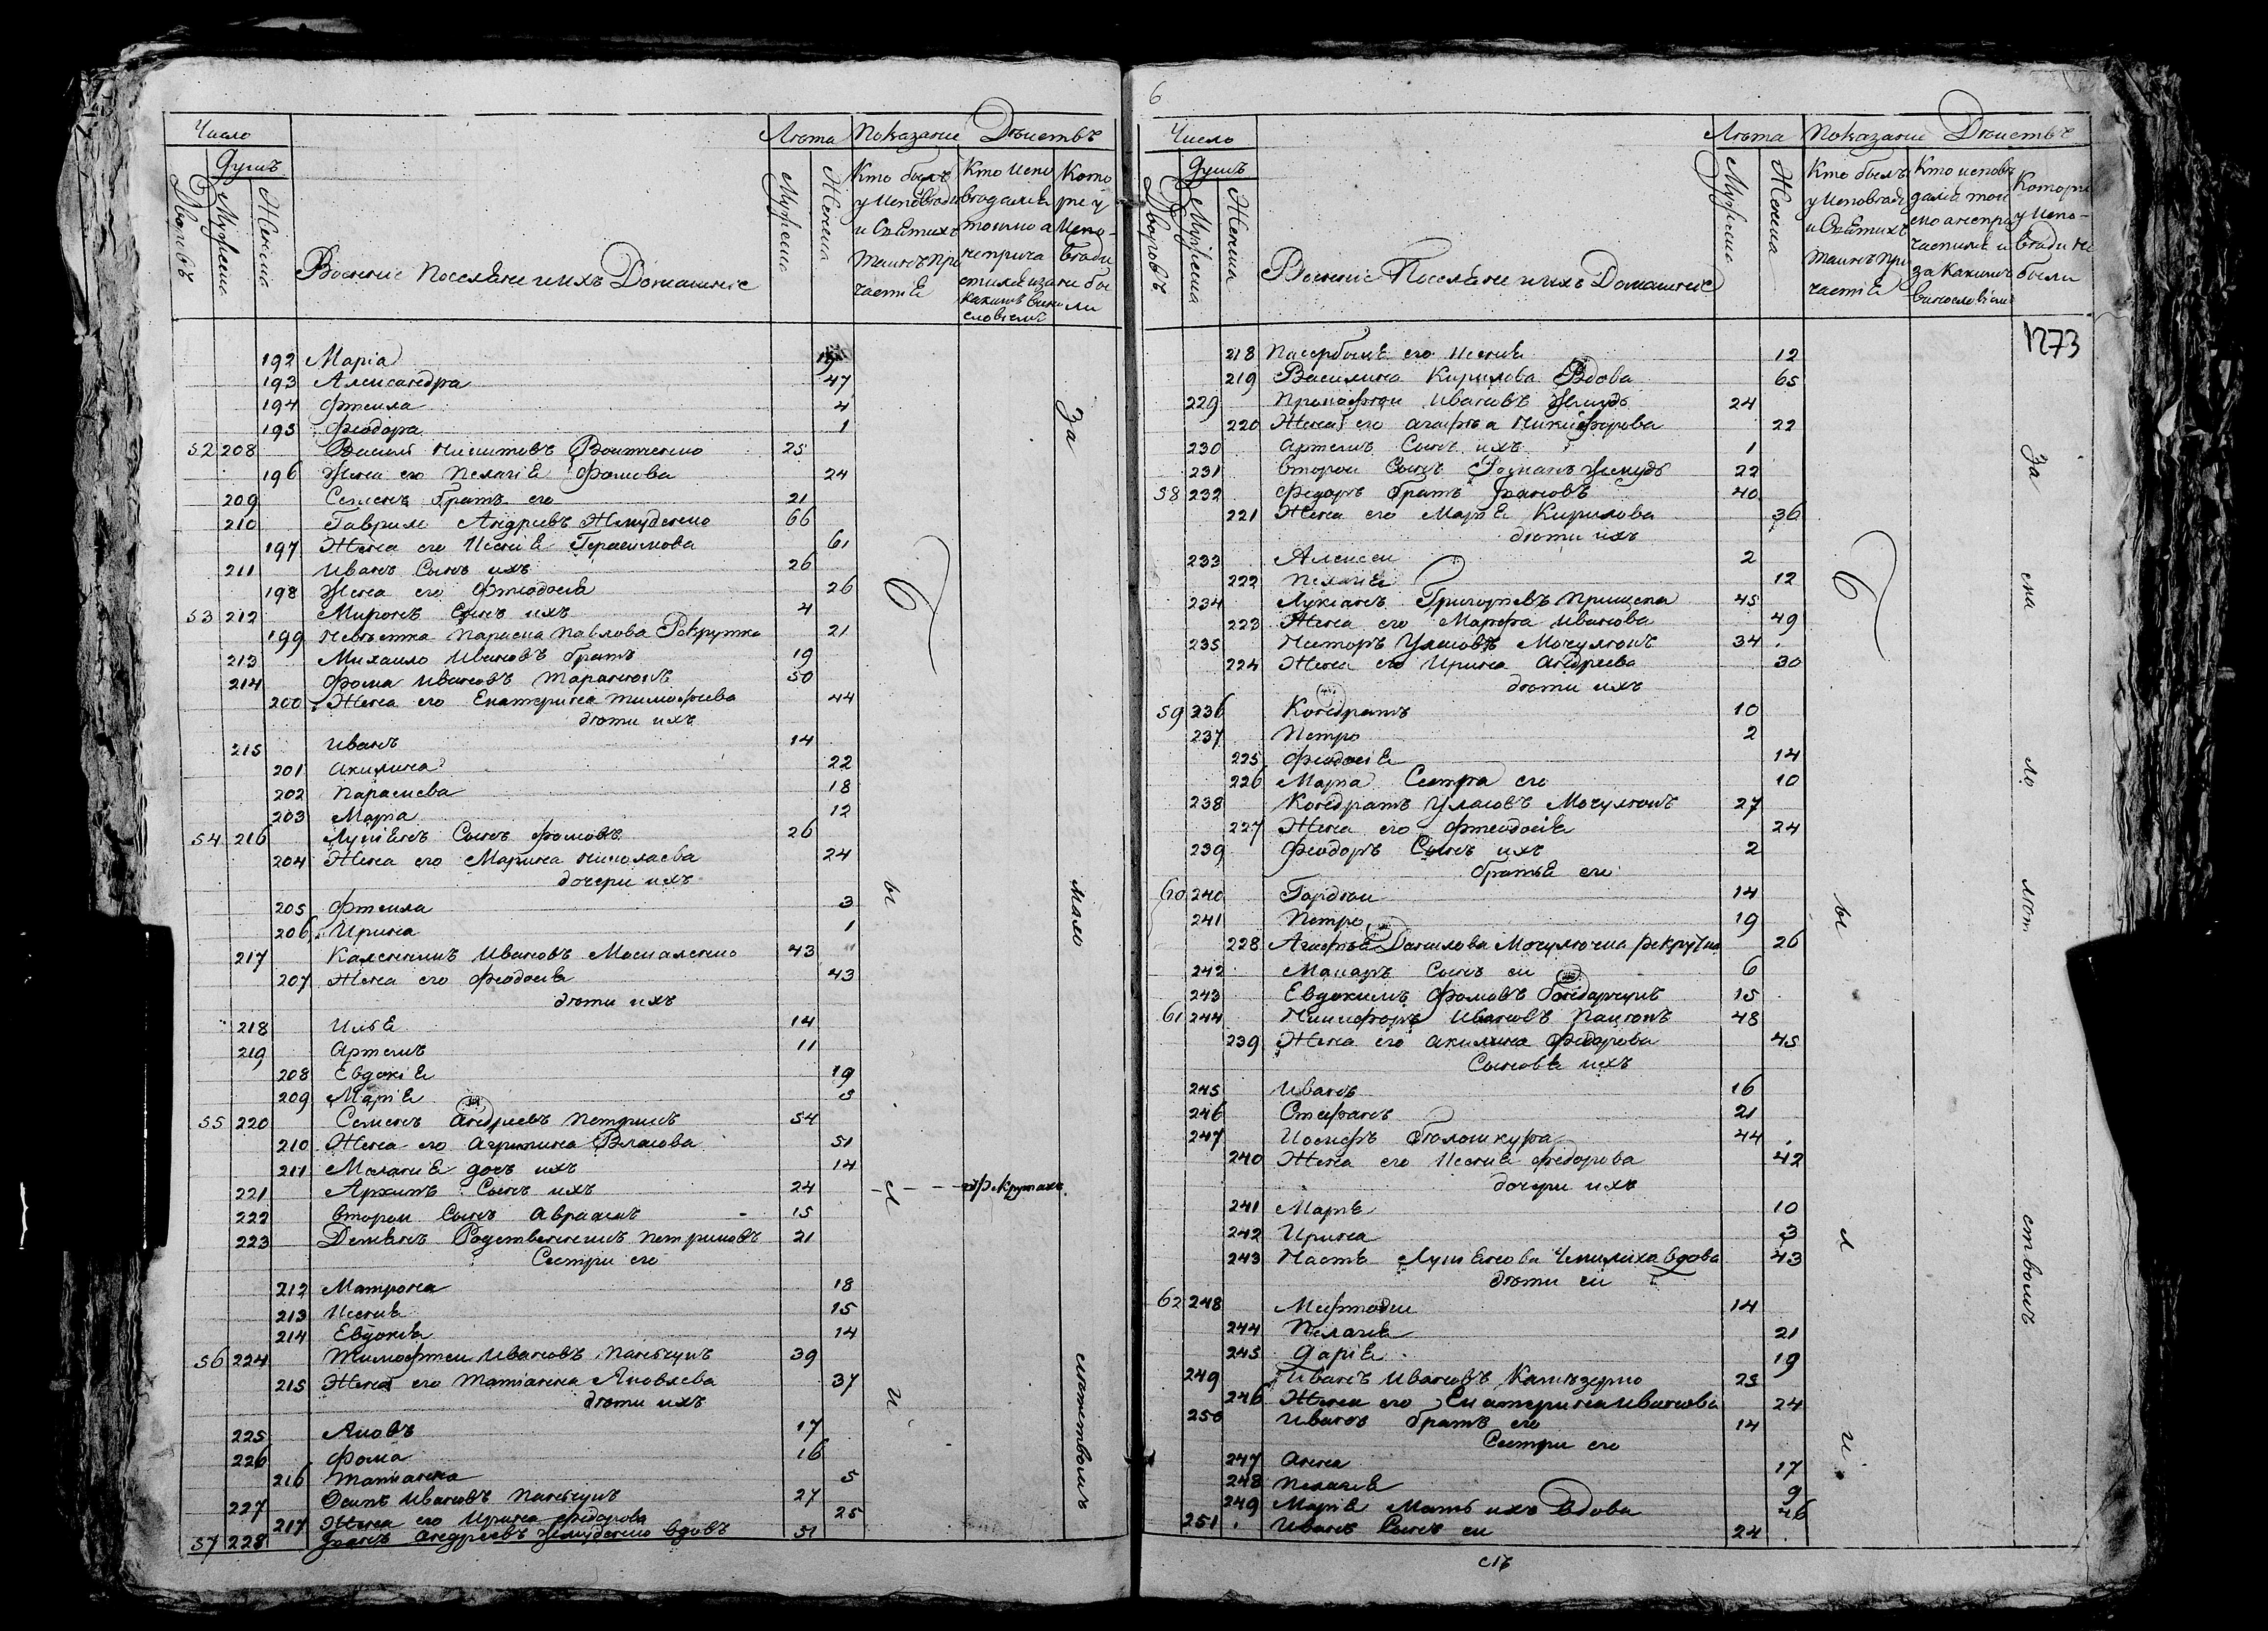 Число
Душъ
Дворовъ
Мужеска
Женска
Военние Поселяне и ихъ Домашніе
Лѣта
Мужеска
Женска
Показаніе Дѣиствъ
Кто былъ у исповѣди и Святихъ Таинъ причастія
Кто исповѣдался толко а непричастился и за какимъ винословіемъ
Которіе у исповѣди не были
192 Маріа
193 Александра 47
194 Фтекла 4
195 Феодора 1
52 208 Василі Никитовъ 25
196 Жена его Пелагія Фомова 24
209 Семенъ братъ его 21
210 Гаврило Андріевъ Жмуденко 66
197 Жена его Ксенія Герасимова 61
211 Иванъ Сынъ ихъ 26
198 Жена его Фтеодосія 26
53 212 Миронъ Сынъ ихъ 4
199 Невѣстка Параска Павлова Рекрутка 21
213 Михаило Ивановъ братъ 19
214 Фома Ивановъ Таранюкъ 50
200 Жена его Екатерина Тимофіева 44
дѣти ихъ
215 Иванъ 14
201 Акилина 22
202 Параскева 18
203 Маріа 12
54 216 Лукіянъ Сынъ Фомовъ 26
204 Жена его Марина Николаева 24
дочери ихъ
205 Фтекла 3
206 Ирина 1
217 Каленикъ Ивановъ Москаленко 43
207 Жена его Феодосія 43
дѣти ихъ
218 Илья 14
219 Артемъ 11
208 Евдокія 19
209 Марія 3
55 220 Семенъ Андріевъ Петрикъ 54
210 Жена его Агрипина Власова 51
211 Меланія дочъ ихъ 14
221 Архипъ Сынъ ихъ 24 - - - - въ рекрутахъ
222 второи Сынъ Авраамъ 15
223 Демянъ Родственникъ Петриковъ 21
Сестри его
212 Матрона 18
213 Ксенія 15
214 Евдокія 14
56 224 Тимофтеи Ивановъ Панчукъ 39
215 Жена его Татіанна Яковлева 37
дѣти ихъ
225 Яковъ 17
226 Фома 16
216 Татіанна 5
227 Осипъ Ивановъ Панчукъ 27
217 Жена его Ирина Федорова 25
57 228 Андреевъ Жмуденко вдовъ 51
Б ы л и
За мало лѣтствомъ
6
Число
Душъ
Дворовъ
Мужеска
Женска
Военніе Поселяне и ихъ Домашніе
Лѣта
Мужеска
Женска
Показаніе Дѣиствъ
Кто былъ у исповѣди и Святихъ Таинъ причастія
Кто исповѣдался толко а непричастился и за какимъ винословіемъ
Которіе у исповѣди не были
1273
218 Пасербыця его Ксенія 12
219 Василина Кирилова Вдова 65
229 Прокофтеи Ивановъ Жмудь 24
220 Жена его Агафіа Никифорова 22
230 Артемъ Сынъ ихъ 1
231 второи Сынъ Романъ Жмудь 22
58 232 Федоръ братъ 40
221 Жена его Марія Кирилова 36
дѣти ихъ
233 Алексеи 2
222 Пелагія 12
234 Лукіанъ Григоріевъ Прищепа 45
223 Жена его Марфа Иванова 49
235 Несторъ Уласовъ Мочулюкъ 34
224 Жена его Ирина Андреева 30
дѣти ихъ
59 236 Кондратъ 10
237 Петро 2
225 Феодосія 14
226 Маріа Сестра его 10
238 Кондратъ Уласовъ Мочулюкъ 27
227 Жена его Фтеодосія 24
239 Феодоръ Сынъ ихъ 2
братья его
60 240 Гордѣи 14
241 Петро 19
228 Агафія Данилова Мочулючка рекрутка 26
242 Макаръ Сынъ еи 6
243 Евдокимъ Фомовъ Бондарчукъ 15
61 244 Никифоръ Ивановъ 48
239 Жена его Акилина Федорова 45
Сыновя ихъ
245 Иванъ 16
246 Стефанъ 21
247 Иосифъ 44
240 Жена его Ксенія Федорова 42
дочери ихъ
241 Марія 10
242 Ирина 3
243 Настя Лукіянова вдова 43
дѣти еи
62 248 Мефтодеи 14
244 Пелагія 21
245 Дарія 19
249 Иванъ Ивановъ 25
246 Жена его Екатерина Иванова 24
250 Иванъ братъ его 14
Сестри его
247 Анна 17
248 Пелагія 9
249 Марія Мать ихъ Вдова 46
251 Иванъ Сынъ еи 24
Б ы л и